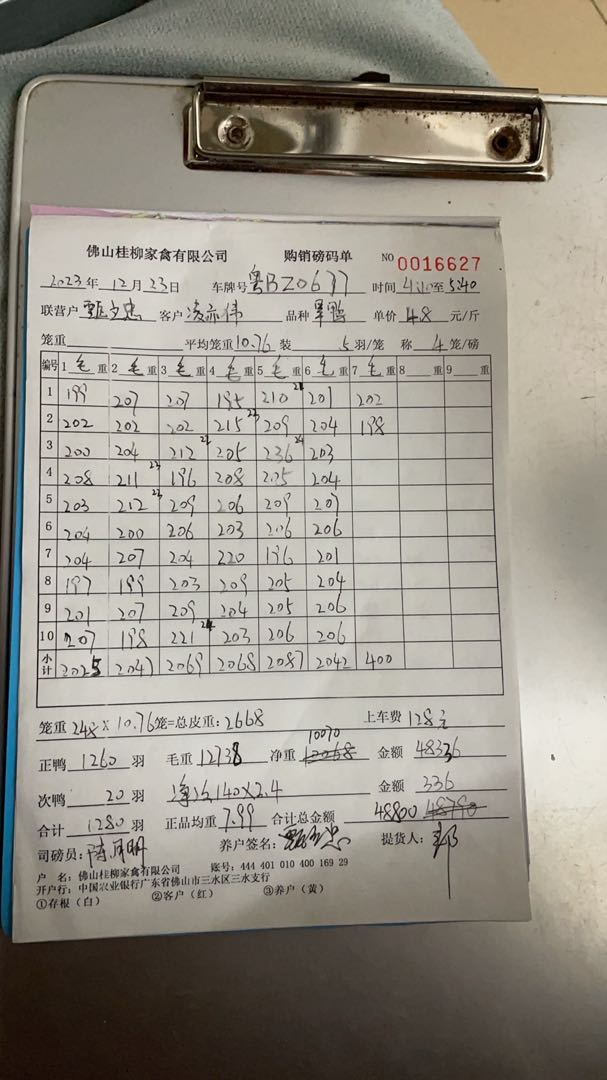 佛山桂柳家禽有限公司 购销磅码单 NO 0016627
2023年 12月 23日 车牌号 粤BZ0677 时间 4:10至5:40
联营户 客户 凌亦伟 品种 单价 4.8 元/斤
笼重 平均笼重10.76 装 5羽/笼 称 4笼/磅
编号 1 毛重 2 毛重 3 毛重 4 毛重 5 毛重 6 毛重 7 毛重 8 重 9 重
1 199 207 207 195 210 21 201 202
2 202 202 202 215 22 209 204 198
3 200 204 212 22 205 236 24 203
4 208 211 23 196 208 205 204
5 203 212 23 209 206 209 207
6 204 200 206 203 206 206
7 204 207 204 220 196 201
8 197 199 203 209 205 204
9 201 207 209 204 205 206
10 207 198 221 24 203 206 206
小计 2025 2047 2069 2068 2087 2042 400
笼重 248×10.76笼=总皮重:2668 上车费 128元
10070
正鸭 1260 羽 毛重 12738 净重 金额 48336
次鸭 20 羽 140×2.4 金额 336
合计 1280 羽 正品均重 7.99 合计总金额 48800 48790
司磅员: 养户签名: 提货人:
户 名: 佛山桂柳家禽有限公司 账号: 444 401 010 400 169 29
开户行: 中国农业银行广东省佛山市三水区三水支行
①存根(白) ②客户(红) ③养户(黄)